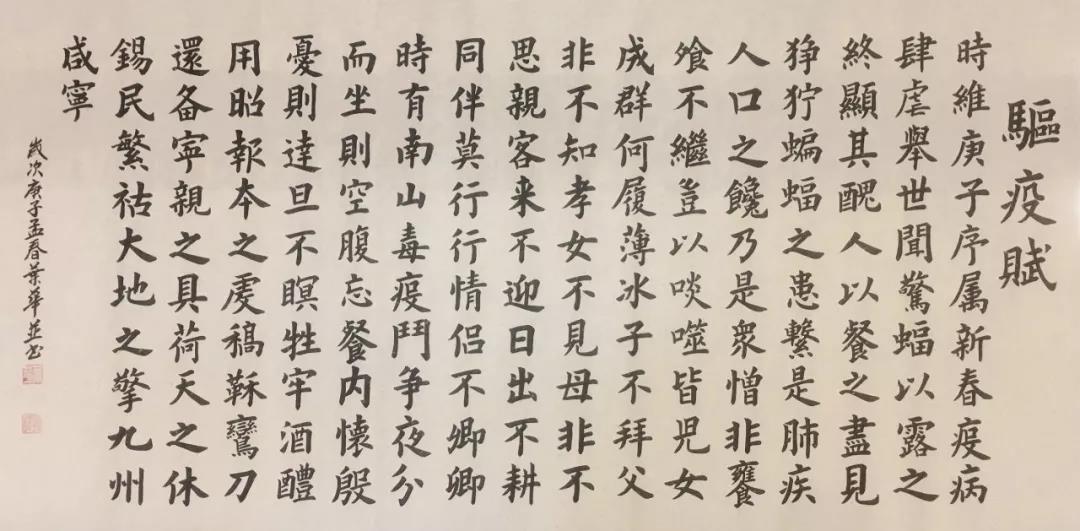 驅疫賦
時維庚子序属新春疫病
肆虐舉世聞驚蝠以露之
終顯其醜人以餐之盡見
狰狞蝙蝠之患繫是肺疾
人口之饞乃是衆憎非饔
飧不繼豈以啖噬皆児女
成群何履薄冰子不拜父
非不知孝女不見母非不
思親客来不迎日出不耕
同伴莫行行情侣不卿卿
時有南山毒疫鬥争夜分
而坐則空腹忘餐内懷殷
憂則達旦不瞑牲牢酒醴
用昭報本之虔稿鞂鸞刀
還备寧親之具荷天之休
錫民繁祜大地之擎九州
咸寧
歲次庚子孟春葉華並书